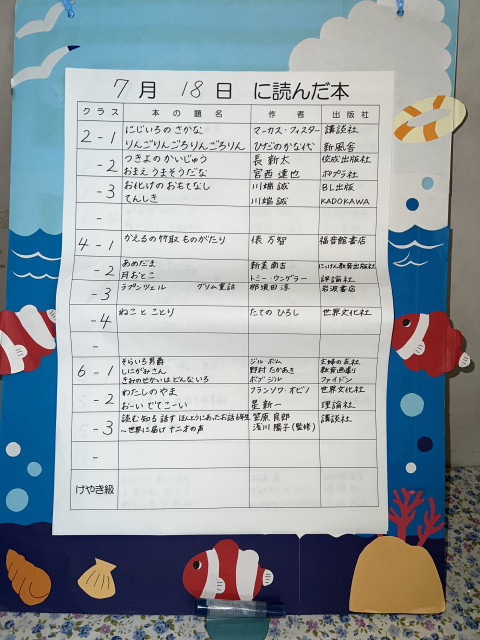 7月 18日 に読んだ本
クラス 本の題名 作者 出版社
2-1 にじいろの さかな マーカス・フィスター 講談社
りんごりんごろりんごろりん ひだのかな代 新風舎
-2 つきよの かいじゅう 長 新太 佼成出版社
おまえ うまそうだな 宮西 達也 ポプラ社
-3 お化けの おもてなし 川端 誠 BL出版
てんしき 川端 誠 KADOKAWA
4-1 かえるの 竹取 ものがたり 俵 万智 福音館書店
-2 あめだま 新美 南吉 にっけん教育出版社
月おとこ トミー・ウンゲラー 評論社
-3 ラプンツェル グリム童話 那須田 淳 岩波書店
-4 ねこ と ことり たての ひろし 世界文化社
-
6-1 そらいろ男爵 ジル ボム 主婦の友社
しにがみさん 野村 たかあき 教育画劇
きみのせかいは どんないろ ボブ ジル ファイドン
-2 わたしの やま フランソワ・オビノ 世界文化社
おーい でてこーい 星 新一 理論社
-3 読む 知る 話す ほんとうにあったお話 笠原 良郎 講談社
～世界に届け 十二才の声 浅川 陽子(監修)
-
けやき級